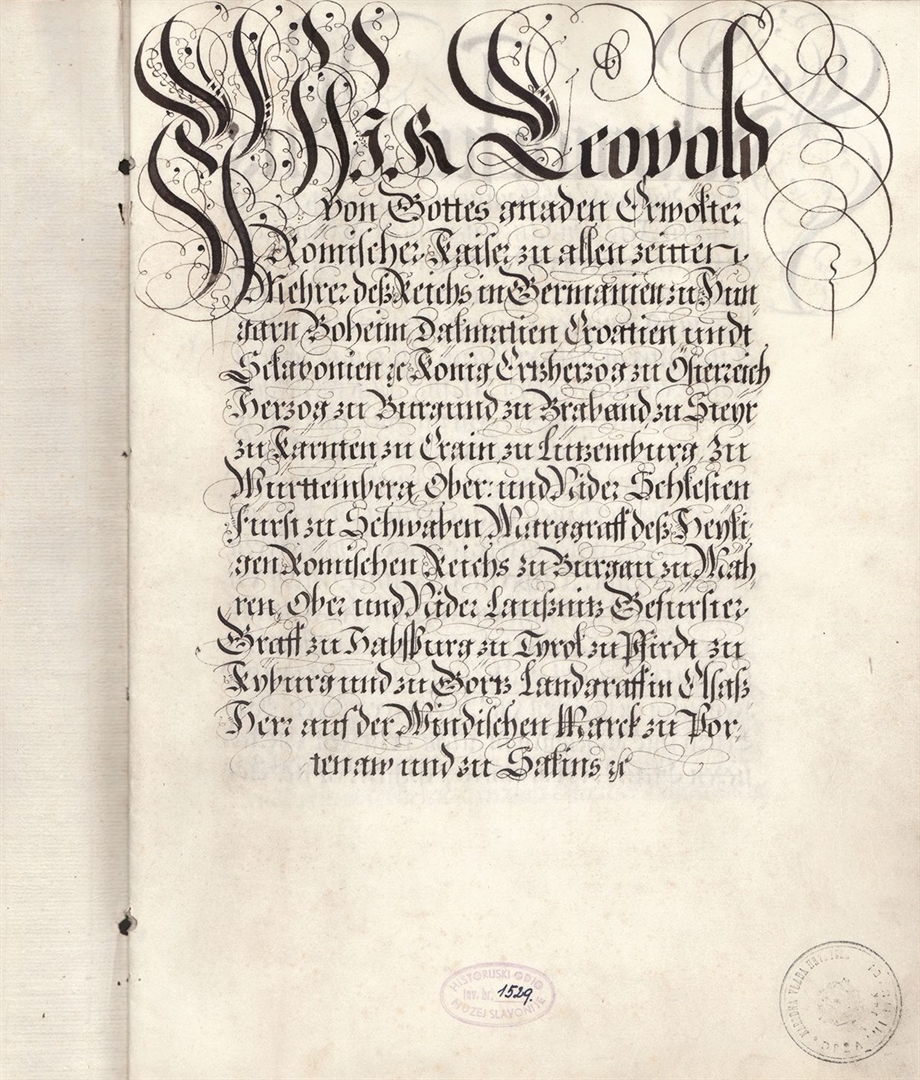 Wir Leopold
von Gottes gnaden Erwolter
Romischer Kaiser zu allen zeitten
Mehrer deß Reichs in Germanien zu Hun
garn Boheim Dalmatien Croatien undt
Sclavonien ꝛc Konig Ertzherzog zu Osterreich
Herzog zu Burgund zu Braband zu Steyr
zu Karnten zu Crain zu Lutzemburg zu
Wurttemberg Ober: und Nider Schlesien
Furst zu Schwaben Marggraff deß Heyli
gen Romischen Reichs zu Burgau zu Mäh
ren, Ober und Nider Laußnitz Gefurster
Graff zu Habspurg zu Tyrol zu Pfirdt zu
Kyburg und zu Gortz Landgraff in Elsaß
Herr auf der Windischen Marck zu Por
tenaw und zu Salins ꝛc
HISTORIJSKI ODIO
Inv. br. 1529.
MUZEJ SLAVONIJE